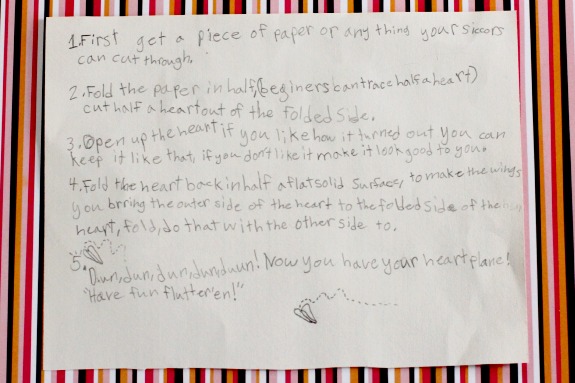 1. First get a piece of paper or any thing your siccors
can cut through.
2. Fold the paper in half, (beginers can trace half a heart)
cut half a heart out of the folded side.
3. Open up the heart if you like how it turned out you can
keep it like that, if you don't like it make it look good to you.
4. Fold the heart back in half a flat solid surface, to make the wings
you brring the outer side of the heart to the folded side of the
heart, fold, do that with the other side to.
5. Dun, dun, dun, dun, duun! Now you have your heart plane!
"Have fun flutter'en!"